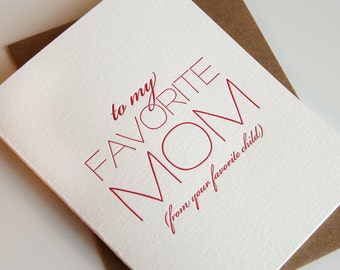 to my
FAVORITE
MOM
(from your favorite child)